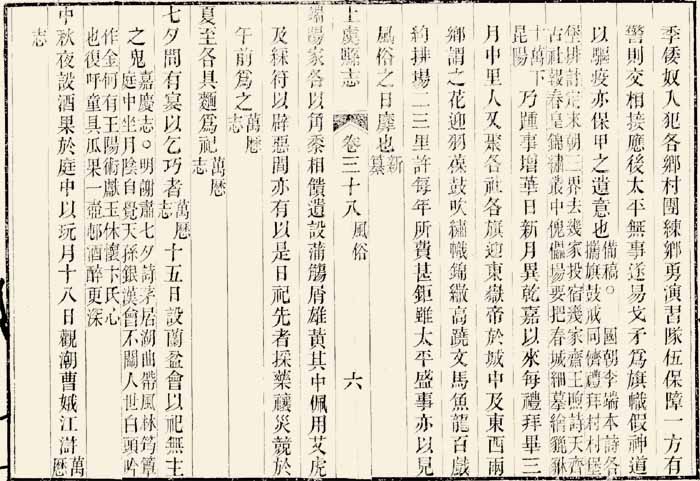 季倭奴入犯各郷村團練郷勇演習隊伍保障一方有
警則交相接應後太平無事遂易戈矛爲旗幟假神道
以驅疫亦保甲之遺意也備稿○國朝李瑞本詩各
攜旗鼓戒同儕禮拜村村堡
堡排計定來朝三界去幾家投宿幾家齋王煦詩天齊
古社報春皇錦繡叢中傀儡場要把春城細摹繪獵猻
十萬下
昆陽乃踵事增華日新月異乾嘉以來每禮拜畢三
月中里人又聚各社各旗迎東嶽帝於城中及東西兩
鄉謂之花迎羽葆鼓吹繡幟錦繖高蹺文馬魚龍百戲
約排場二三里許每年所費甚鉅雖太平盛事亦以見
風俗之日靡也新
纂
上虞縣志 卷三十八 風俗 六
端陽家各以角黍相饋遺設蒲觴屑雄黃其中佩用艾虎
及綵符以辟惡間亦有以是日祀先者採藥禳災競於
午前爲之萬曆
志
夏至各具麵爲祀萬曆
志
七夕間有宴以乞巧者萬曆
志十五日設蘭盆會以祀無主
之鬼嘉慶志○明謝肅七夕詩茅居湖曲帶風林筠簟
庭中坐月陰自覺天孫銀漢會不關人世白頭吟
作金何有王陽術獻玉休懷卞氏心
也復呼童具瓜果一壺邨酒醉更深
中秋夜設酒果於庭中以玩月十八日觀潮曹娥江滸萬
曆
志